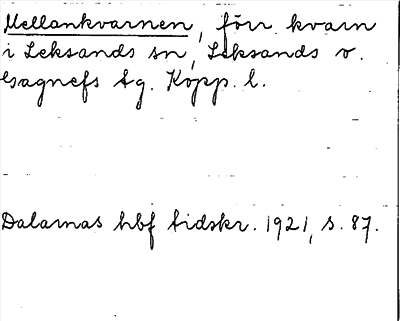 Mellankvarnen, förr kvarn
i Leksands sn, Leksands o.
Gagnefs tg. Kopp. l.
Dalarnas hbf tidskr. 1921, s. 87.